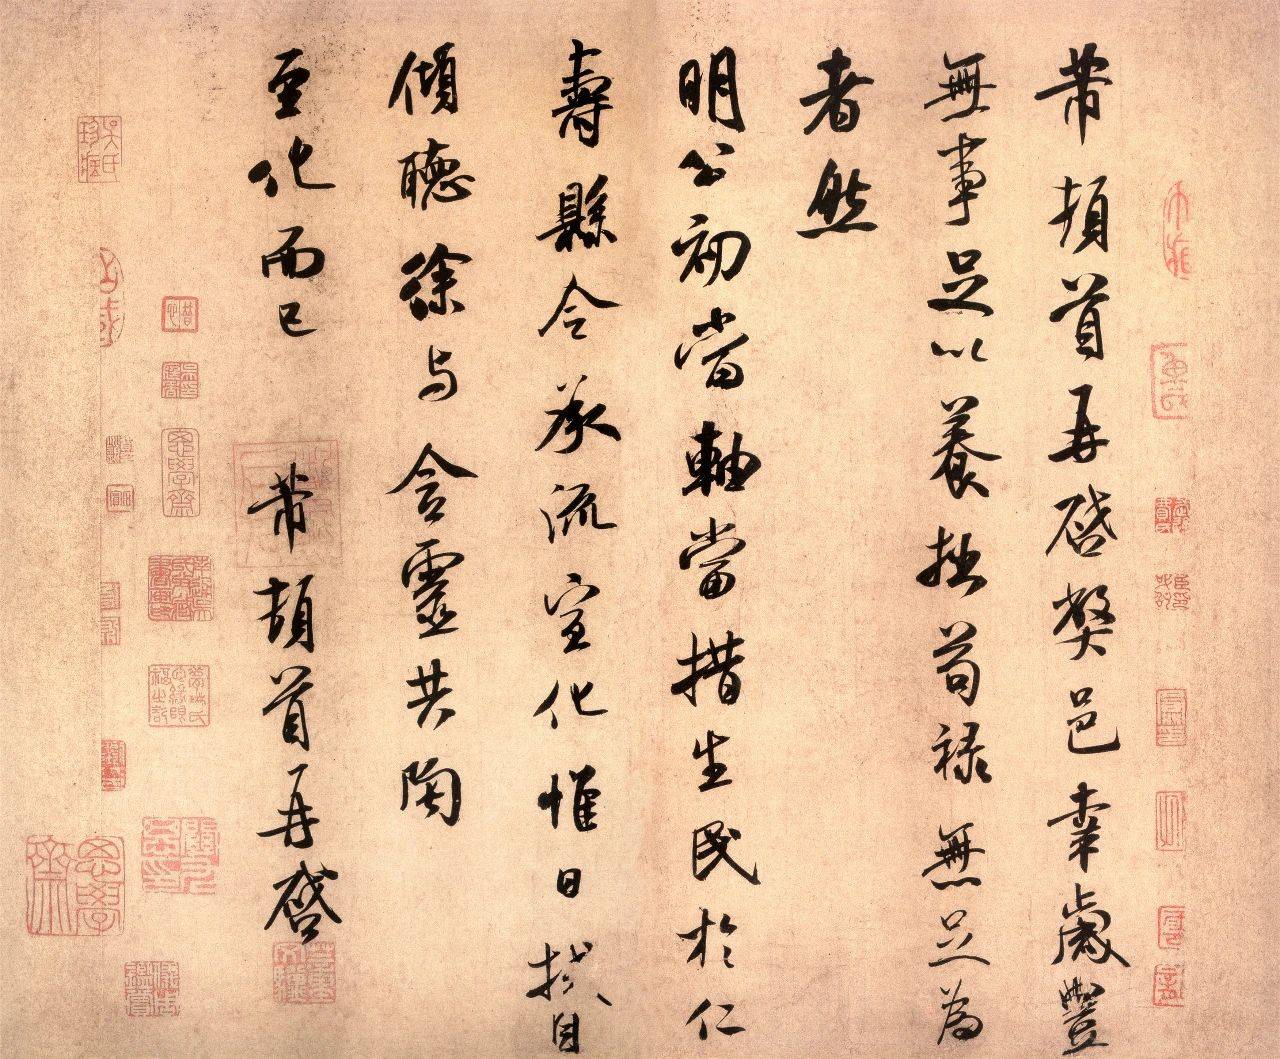 芾頓首再啓弊邑幸歲豐
無事足以養拙苟祿無足爲
者然
明公初當軸當措生民於仁
壽縣令承流宣化惟日拭目
傾聽徐與含靈共陶
至化而已芾頓首再啓